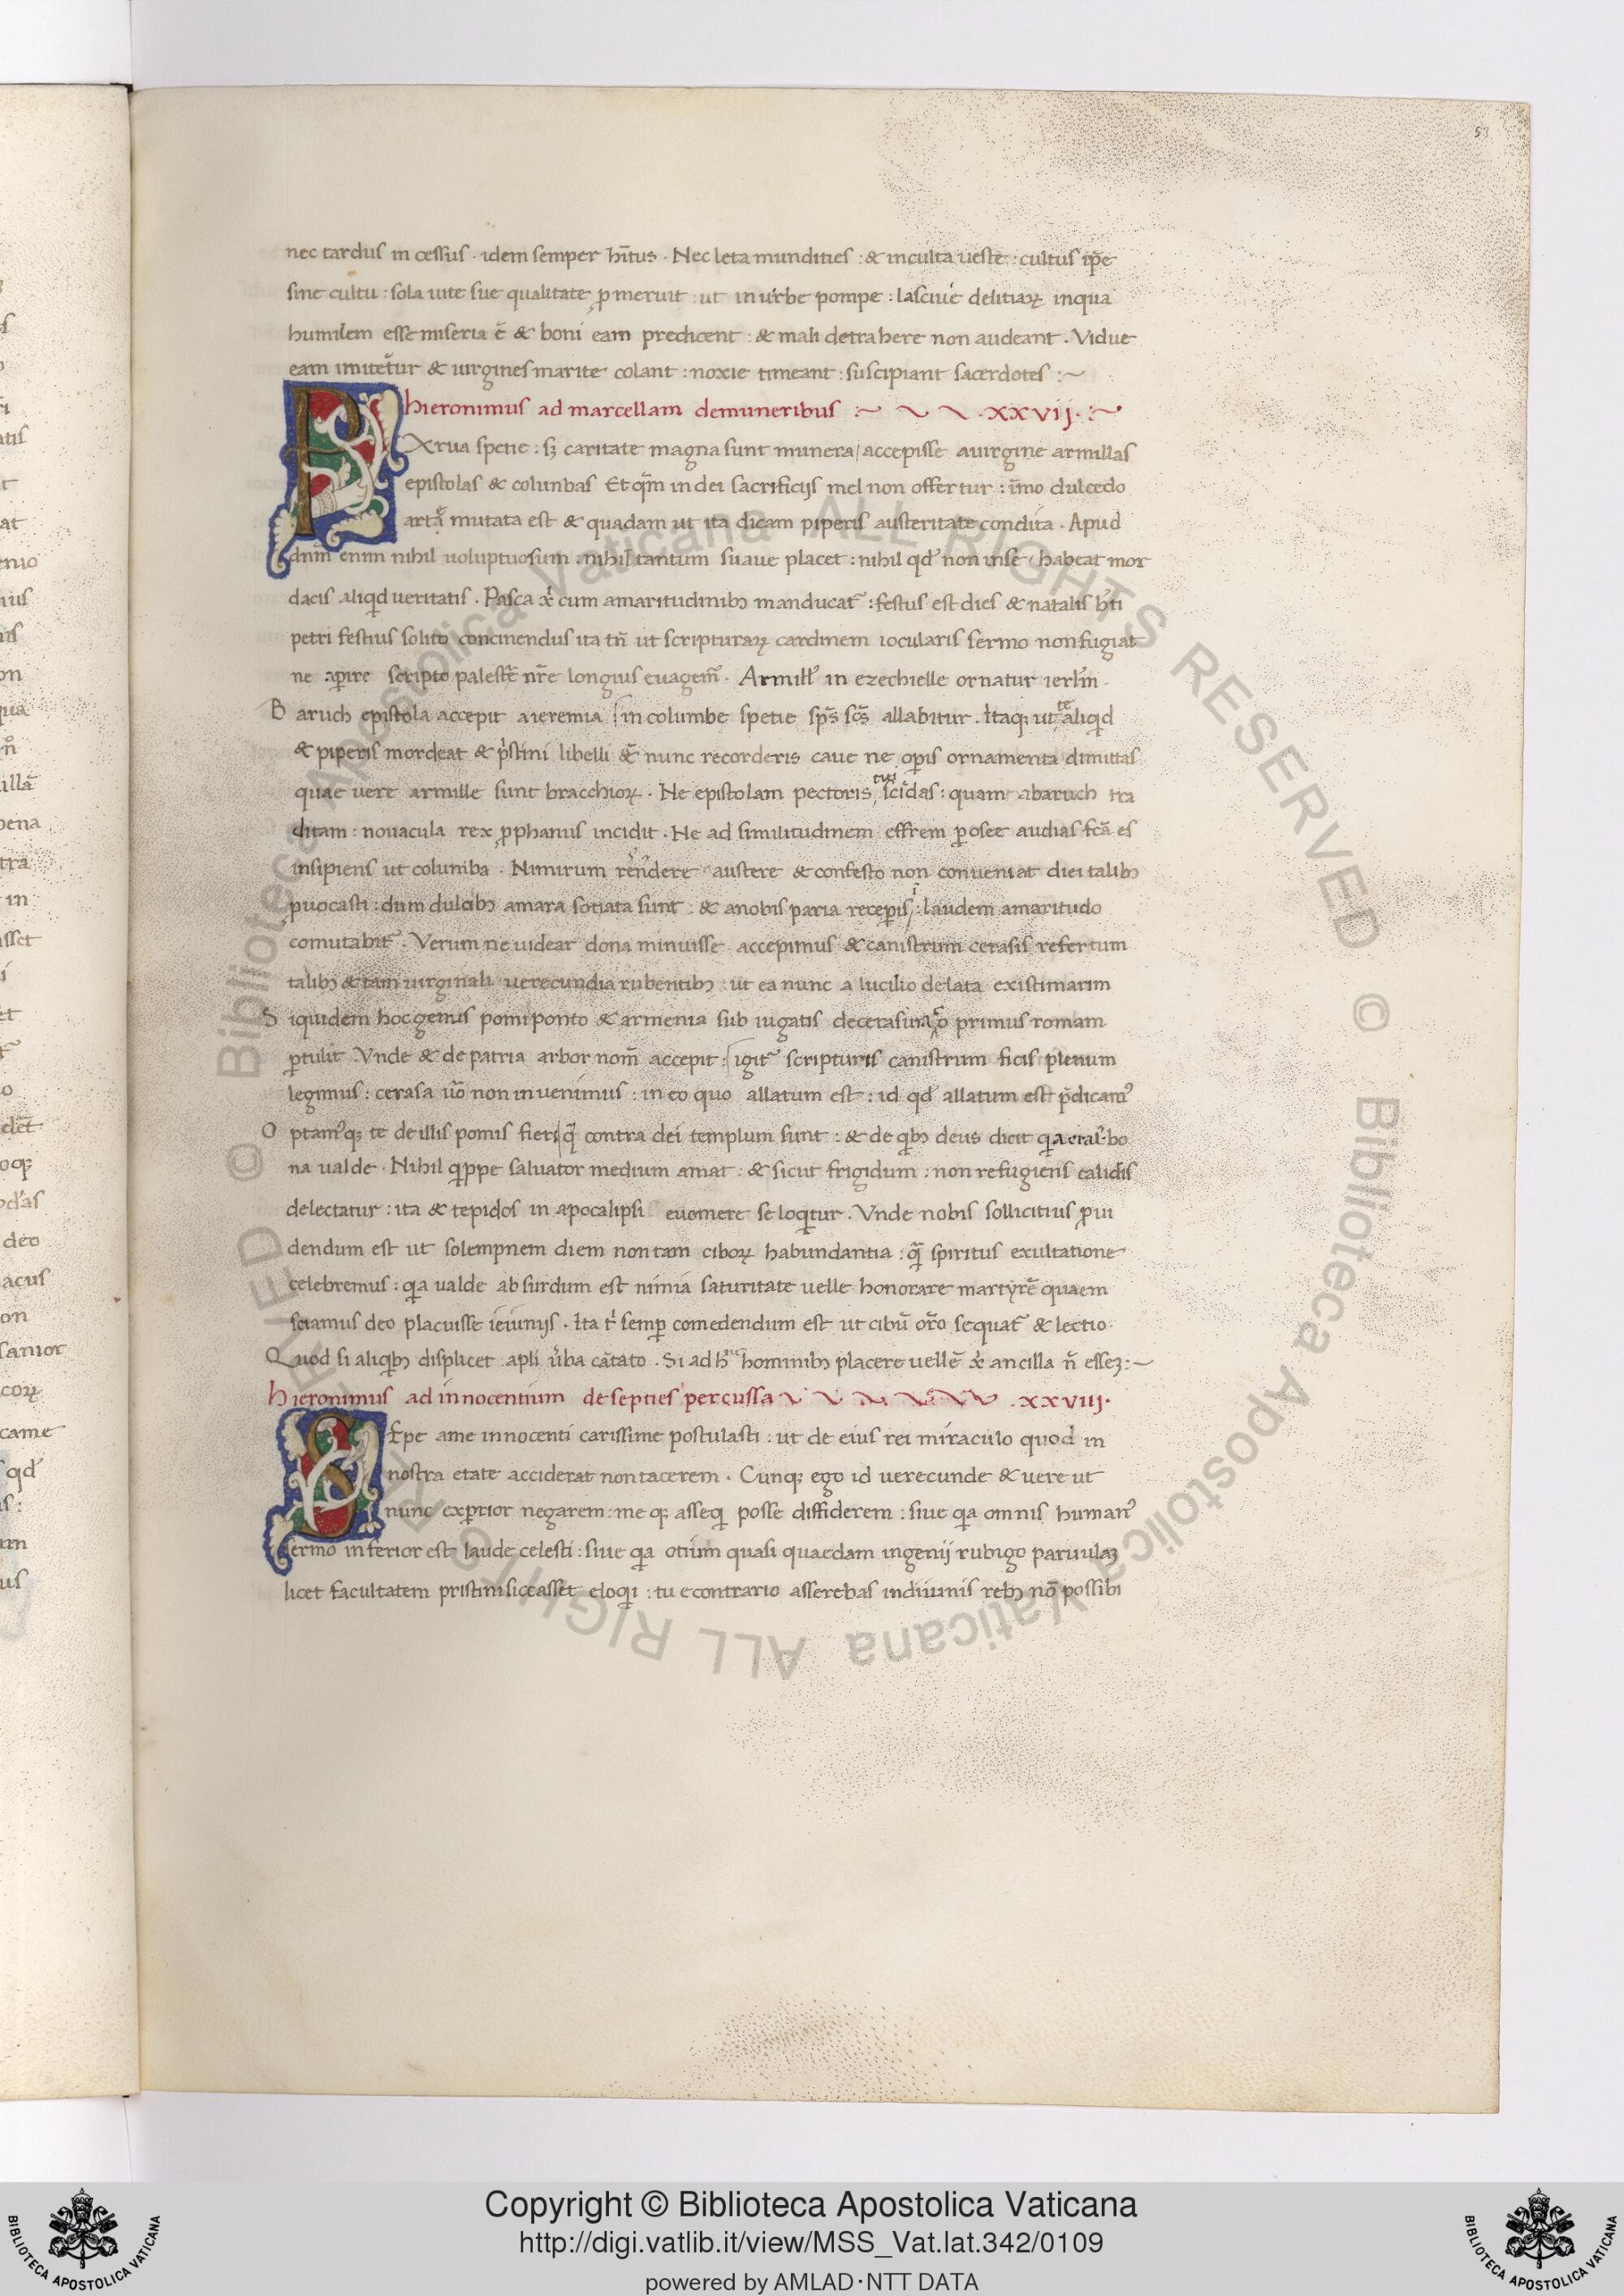 53
nec tardus in cessus . idem semper hītus . Nec leta mundities : & inculta ueste : cultus ip̄e
sine cultu : sola uite sue qualitate ꝓmeruit : ut in urbe pompe : lasciue delitiaꝝ inqua
humilem esse miseria ē & boni eam predicent : & mali detrahere non audeant . Vidue
eam imitētur & uirgines marite colant : noxie timeant : suscipiant sacerdotes :~
hieronimus ad marcellam demuneribus :~ ~ ~ .xxvij. :~
PArua spetie : sꝫ caritate magna sunt munera / accepisse auirgine armillas
epistolas & colunbas Et qm̄ in dei sacrificijs mel non offertur : īmo dulcedo
arta mutata est & quadam ut ita dicam piperis austeritate condita . Apud
dnm̄ enim nihil uoluptuosum . nihil tantum suaue placet : nihil qd' non inse habeat mor
dacis aliqd ueritatis . Pasca xr̄ cum amaritudinibꝫ manducat̄ : festus est dies & natalis b̄ti
petri festius solito concinendus ita tn̄ ut scripturaꝝ cardinem iocularis sermo non fugiat
ne aꝑire scripto palestr̄e nr̄e longius euagem̄ . Armill' in ezechielle ornatur ierl'm
Baruch epistola accepit aieremia / in columbe spetie sps̄ scs̄ allabitur . Itaqꝫ ut te aliqd
& piperis mordeat & pristini libelli & nunc recorderis caue ne oꝑis ornamenta dimittas
quae uere armille sunt bracchioꝝ . Ne epistolam pectoris tui scidas : quam abaruch tra
ditam : nouacula rex ꝓphanus incidit . Ne ad similitudinem effrem ꝑ osee audias fcā es
insipiens ut columba . Nimirum rēndere austere & confesto non conueniat diei talibꝫ
ꝓuocasti : dum dulcibꝫ amara sotiata sunt : & anobis paria receꝑis : laudem amaritudo
comutabit̄ . Verum ne uidear dona minuisse accepimus & canistrum cerasis refertum
talibꝫ & tam uirginali uerecundia rubentibꝫ : ut ea nunc a lucilio delata existimarim
Siquidem hoc genus pomi ponto & armenia sub iugatis decerasunto primus romam
ꝑtulit Vnde & de patria arbor nom̄ accepit : / igit̄ scripturis canistrum ficis plenum
legimus : cerasa uō non inuenimus : in eo quo allatum est : id qd' allatum est p̄dicam'
Optam'qꝫ te de illis pomis fieri / q̄ contra dei templum sunt : & de qbꝫ deus dicit qa erat bo
na ualde . Nihil qppe saluator medium amat : & sicut frigidum : non refugiens calidis
delectatur : ita & tepidos in apocalipsi euomere se loqtur . Vnde nobis sollicitius ꝓui
dendum est ut solempnem diem non tam ciboꝝ habundantia : q̄ spiritus exultatione
celebremus : qa ualde absurdum est nimia saturitate uelle honorare martyrē quaem
sciamus deo placuisse ieiunijs . Ita t' semꝑ comedendum est ut cibū or̄o sequat̄ & lectio
Quod si aliqbꝫ displicet apli uba cātato . Si ad huc hominibꝫ placere uellē xr̄ ancilla n̄ esseꝫ :~
hieronimus ad innocentium de septies percussa ~ ~ ~ ~ ~ .xxviii.
SEpe ame innocenti carissime postulasti : ut de eius rei miraculo quod in
nostra etate acciderat non tacerem . Cunqꝫ ego id uerecunde & uere ut
nunc exꝑtior negarem : me qꝫ asseq posse diffiderem : siue qa omnis human'
sermo inferior est laude celesti : siue qa otium quasi quaedam ingenij rubigo paruulaꝫ
licet facultatem pristini siccasset eloqi : tu econtrario asserebas indiuinis rebꝫ nō possibi
Copyright © Biblioteca Apostolica Vaticana
http://digi.vatlib.it/view/MSS_Vat.lat.342/0109
powered by AMLAD·NTT DATA
BIBLIOTECA APOSTOLICA VATICANA
BIBLIOTECA APOSTOLICA VATICANA
© Biblioteca Apostolica Vaticana ALL RIGHTS RESERVED © Biblioteca Apostolica Vaticana ALL RIGHTS RESERVED